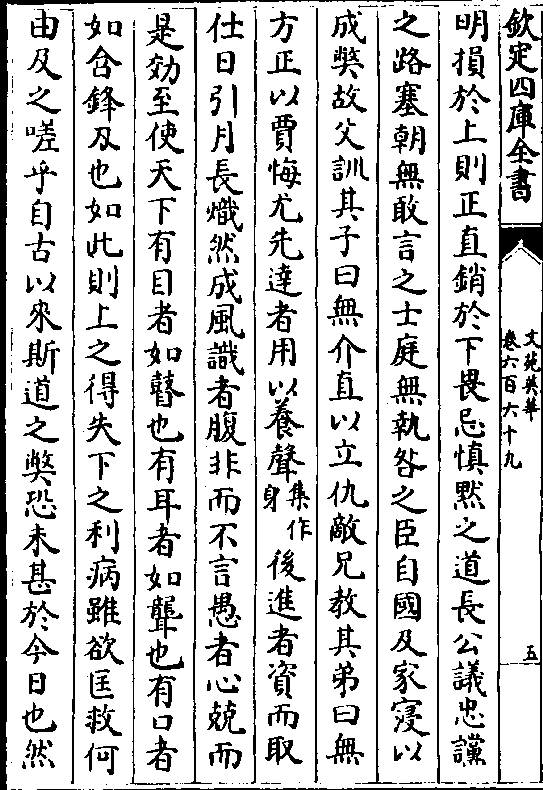 欽定四庫全書
文苑英華
卷六百六十九
五
明損於上則正直銷於下畏忌慎黙之道長公議忠讜
之路塞朝無敢言之士庭無執咎之臣自國及家寖以
成獘故父訓其子曰無介直以立仇敵兄教其弟曰無
方正以賈悔尤先達者用以養聲集作身後進者資而取
仕日引月長熾然成風識者腹非而不言愚者心兢而
是効至使天下有目者如瞽也有耳者如聾也有口者
如含鋒刄也如此則上之得失下之利病雖欲匡救何
由及之嗟乎自古以來斯道之獘恐未甚於今日也然